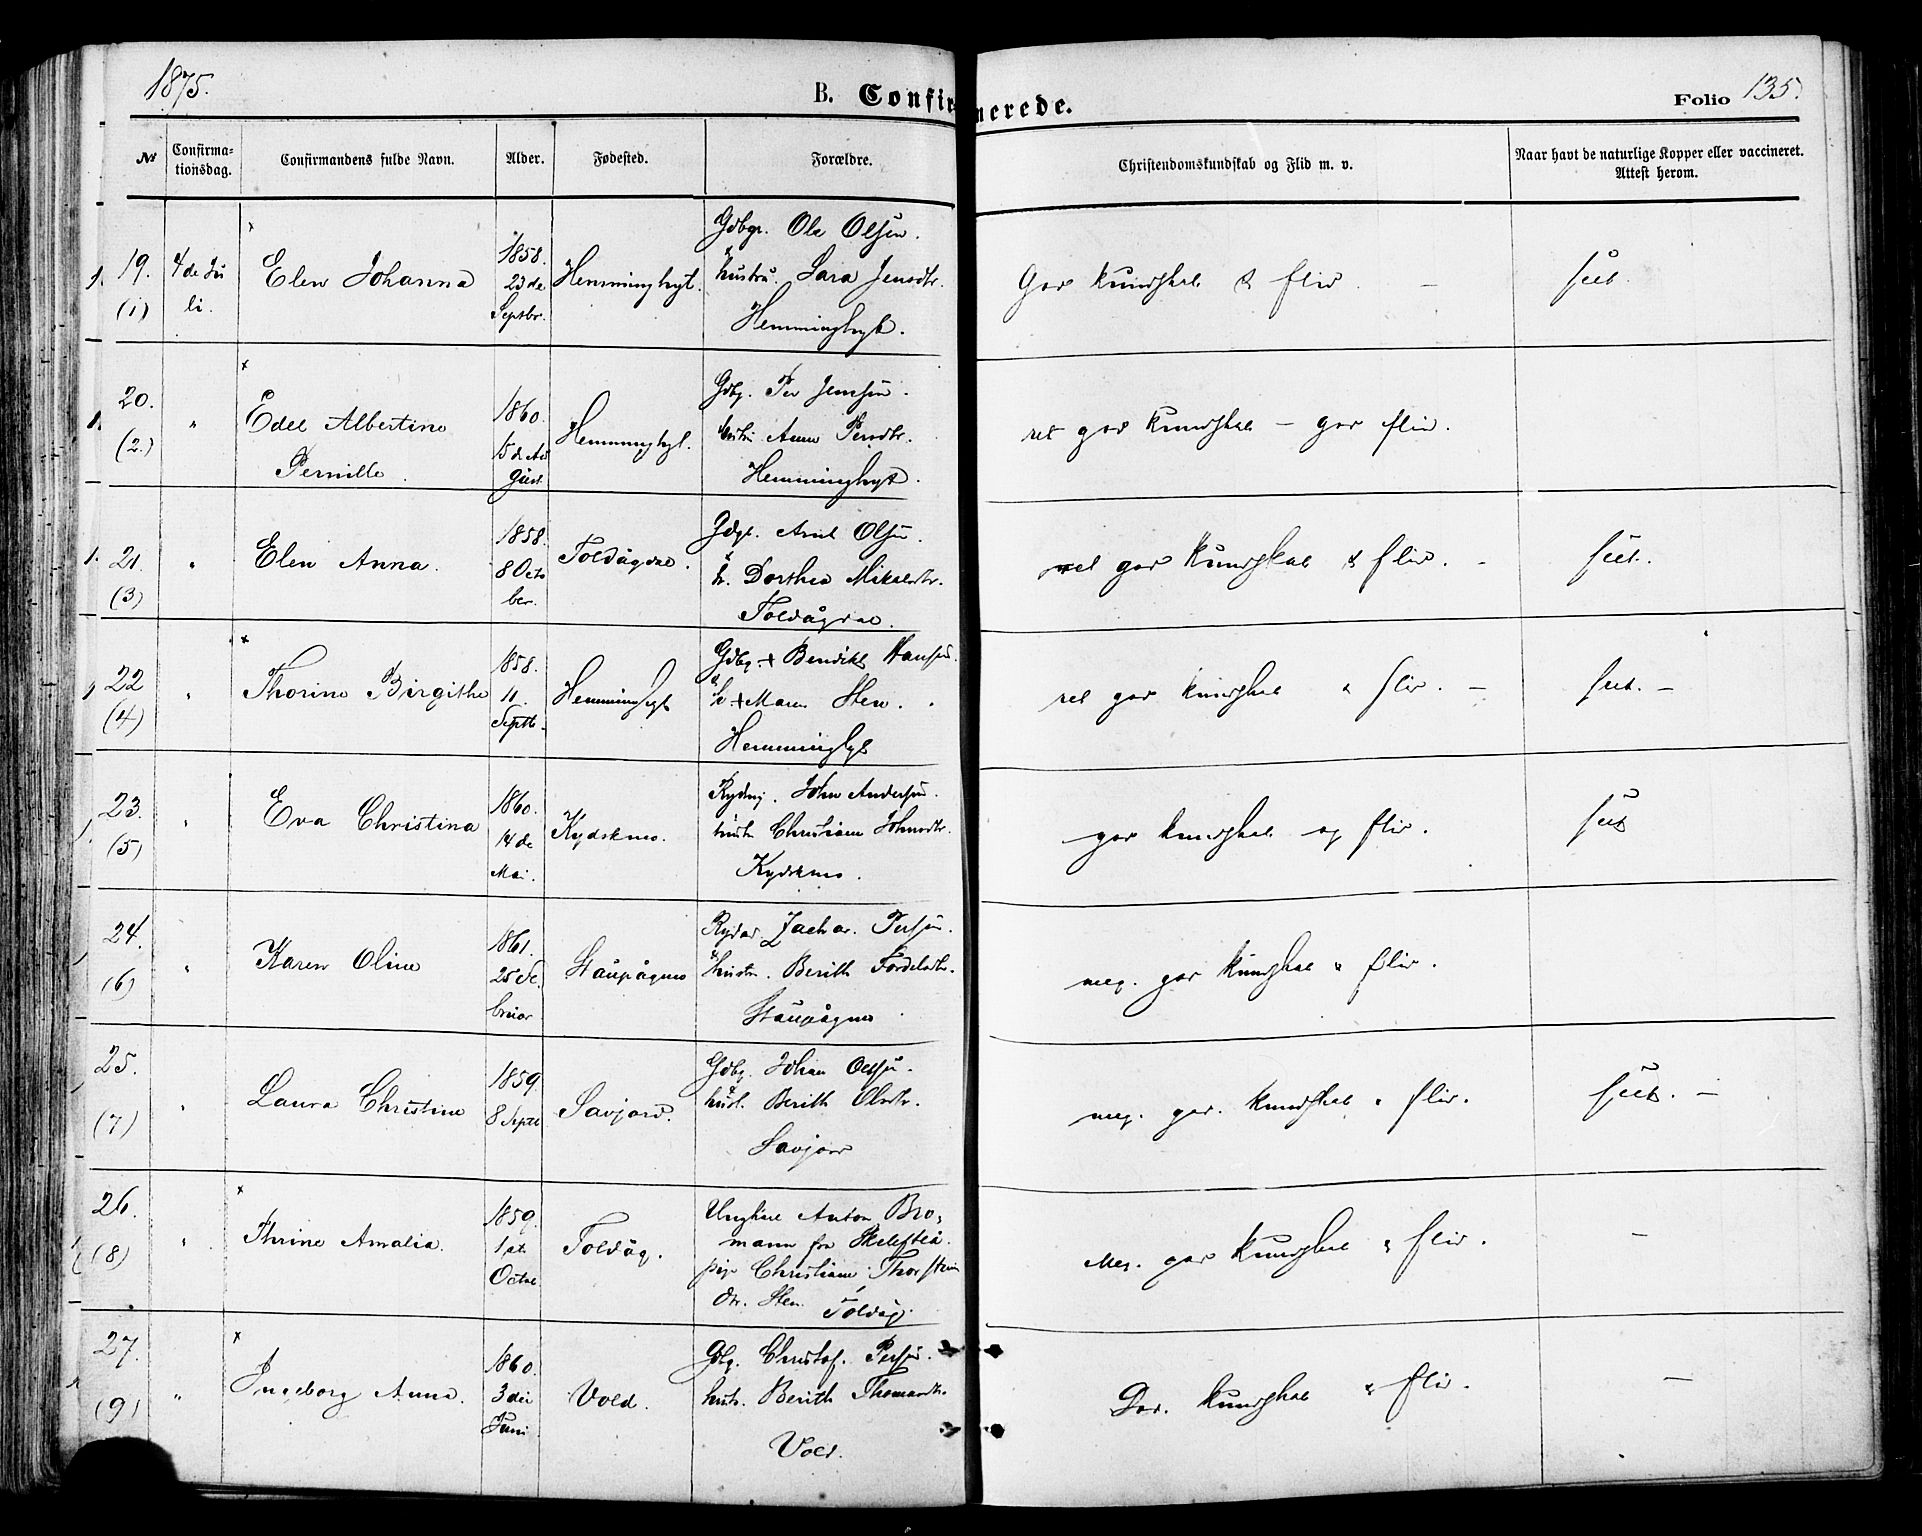 1875.
B. Confirmerede.
Folio 135.
No
Confirma-
tionsdag.
Confirmandens fulde Navn.
Alder.
Fødested.
Forældre.
Christendomskundskab og Flid m. v.
Naar havt de naturlige Kopper eller vaccineret.
Attest herom.
19.
(1)
4de Ju
li.
Elen Johanna
1858.
23de
Septbr.
Hemminghyt.
Gdbgr. Ole Olsen.
& hustru. Sara Jensdtr.
Hemminghyt.
God kundskab & flid.
20.
(2.)
"
Edel Albertine
Pernille
1860.
15de Au
gust
Hemminghyt.
Gdbg. Per Jensen.
hustru Anne Persdtr.
Hemminghyt.
ret god kundskab – god flid.
21.
(3)
"
Elen Anna.
1858.
8 Octo
ber.
Toldågdal.
Gdbg. Arnt Olsen.
& h. Dorthea Mikalsdtr.
Toldågdal.
ret god kundskab & flid. -
22
(4)
"
Thorine Birgithe
1858.
11
Septb.
Hemminghyt
Gdbg. + Bendikt Hansen.
& h + Maren Sten.
Hemminghyt
ret god kundskab & flid. –
23.
(5)
"
Eva Christina
1860.
14de
Mai.
Kydsknes.
John Andersen.
hustr Christiane Johnsdtr.
Kydsknes.
god kundskab og flid.
24.
(6)
"
Karen Oline
1861.
25 Fe
bruar
Staupågnes
Zachar. Persen.
Hustr. Berith Fordelsdtr.
Staupågnes
meg. god kundskab & flid.
25.
(7)
"
Laura Christine
1859.
8 Septb
Savjord.
Gdbg. Johan Olsen.
hust. Berith Olsdtr.
Savjord
meg. god. kundskab & flid.
26.
(8)
"
Thrine Amalia.
1859.
1st.
Octbr
Toldåg.
Ungkarl Anton Bro,
mann fra Skelefteå
pige Christiane Thorstein
dtr. Sten. Toldåg.
Meg. god kundskab & flid.
–
27.
(9)
"
Ingeborg Anna.
1860.
3die
Juni
Vold.
Gdbg. Christof. Persen.
hust. Berith Thomasdtr.
Vold.
God. kundskab & flid.
–